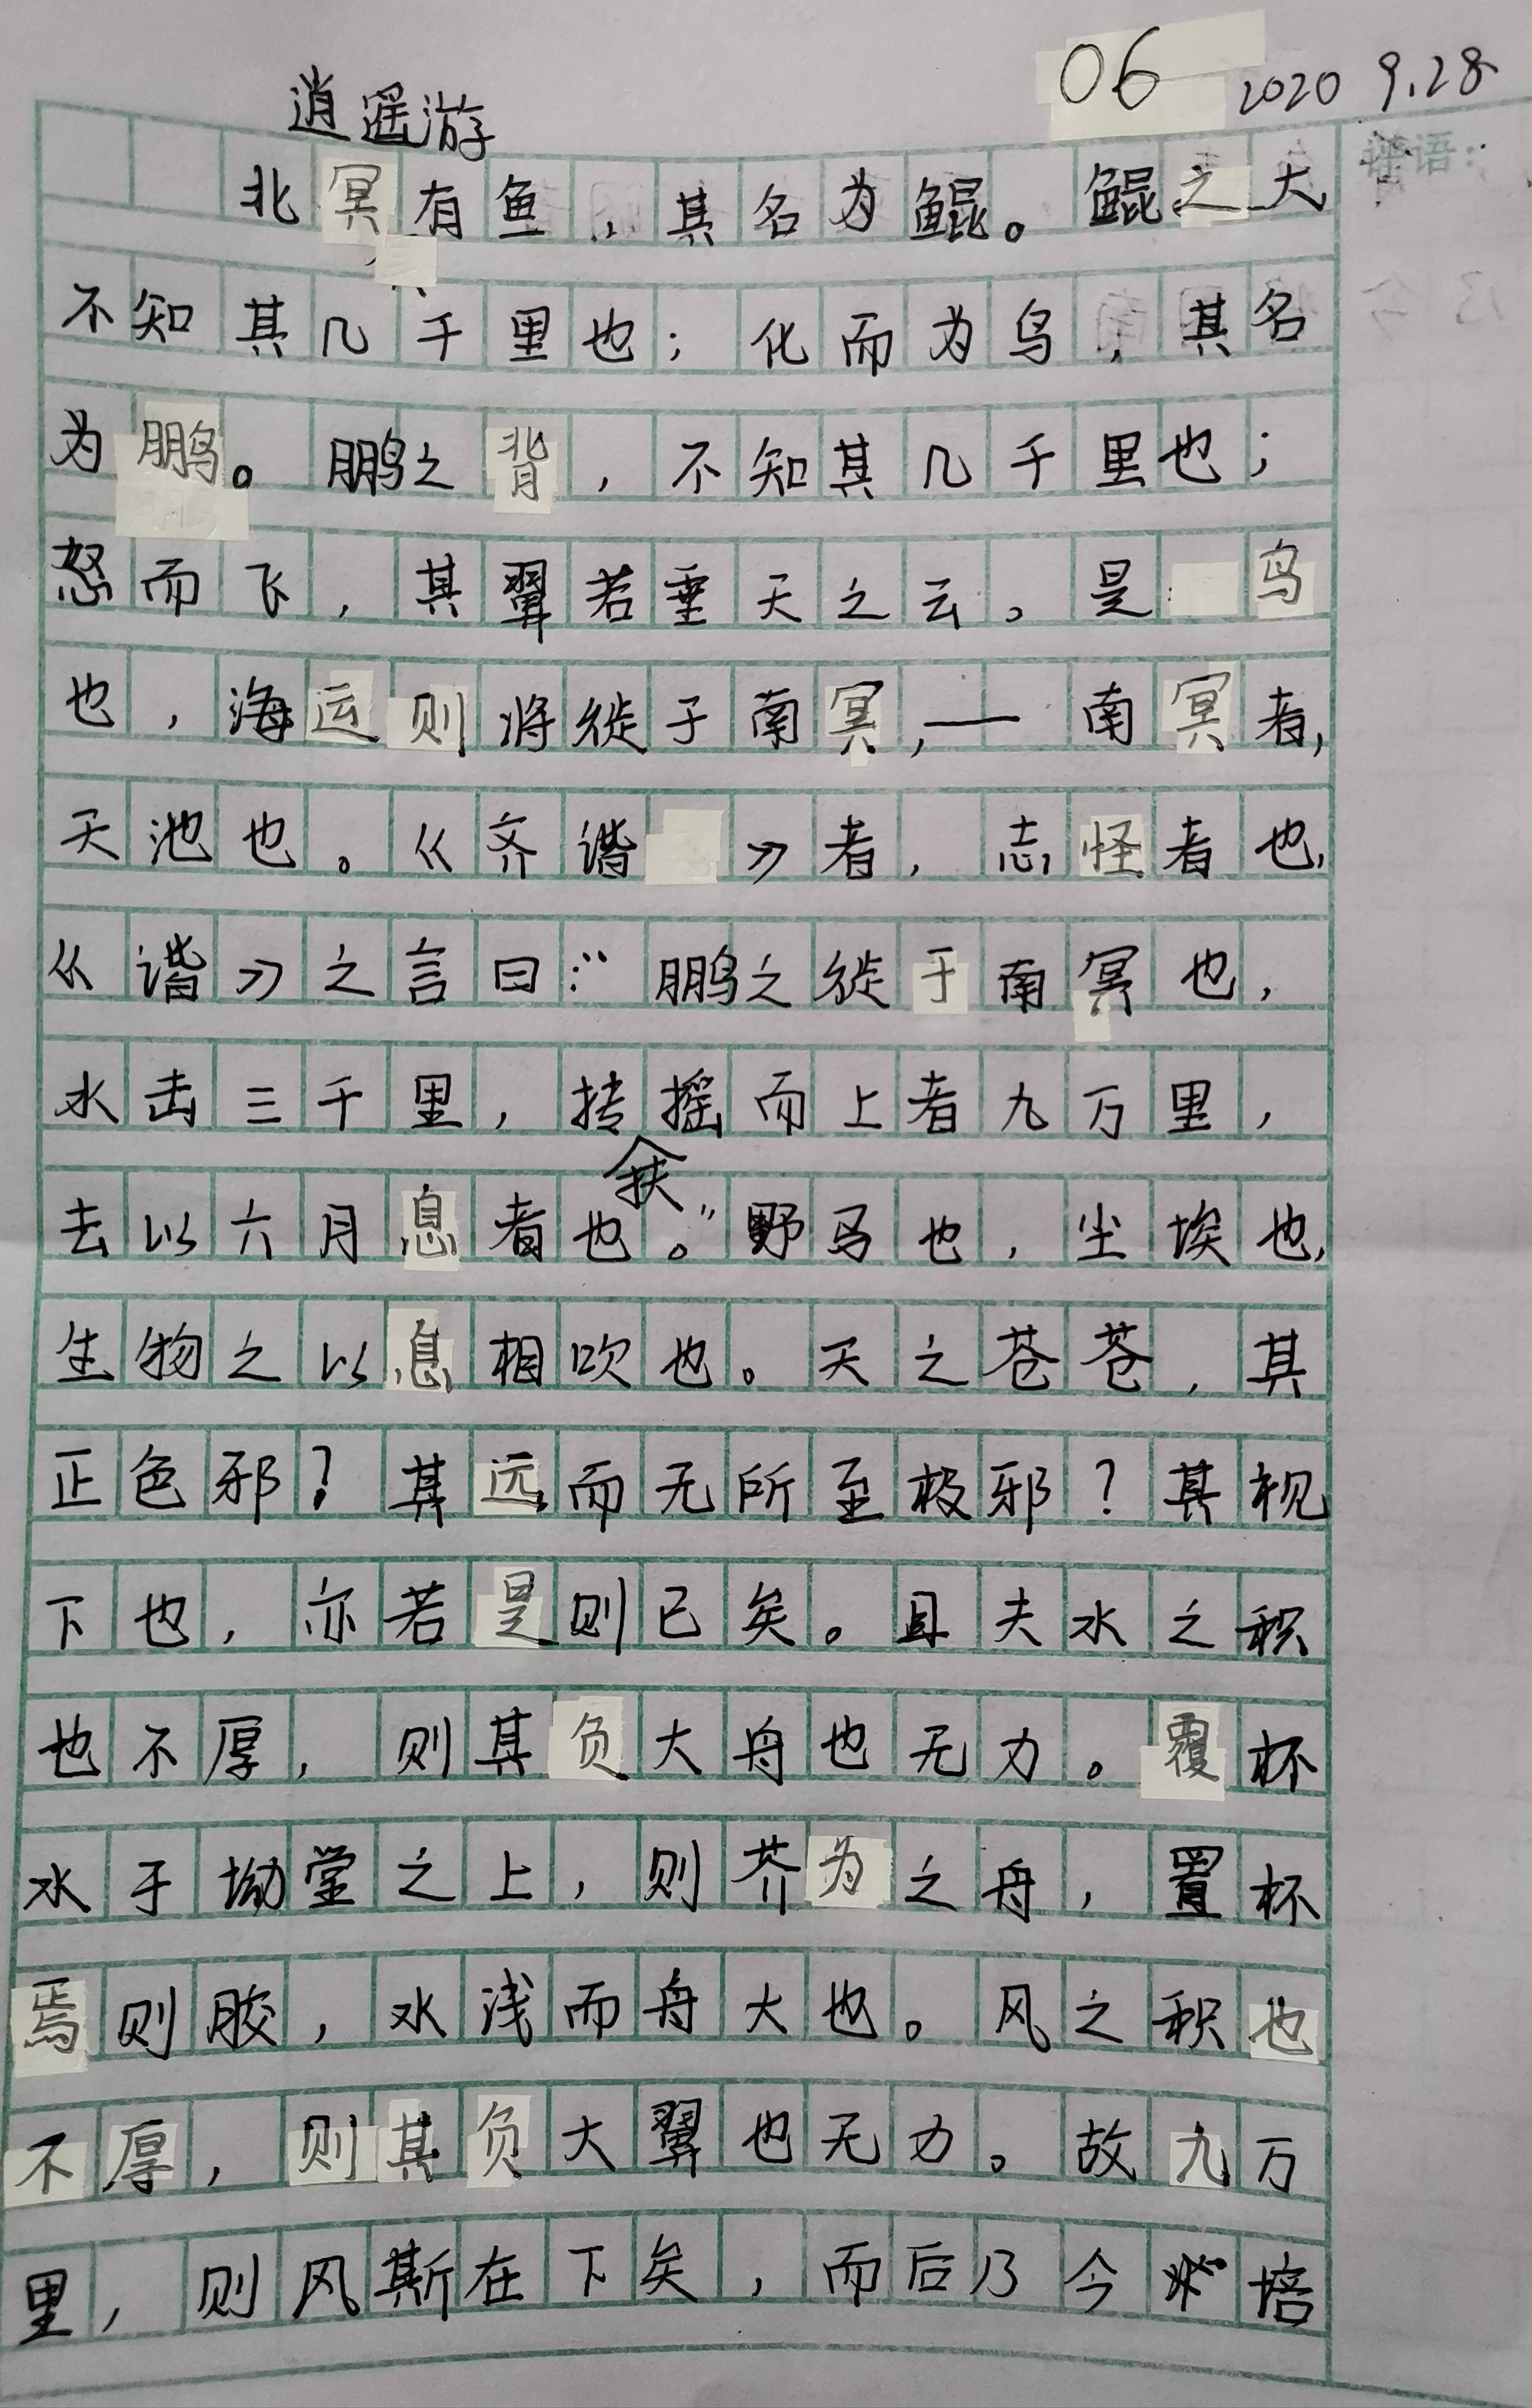 06 2020 9.28
逍遥游
评语：
北冥有鱼，其名为鲲。鲲之大
不知其几千里也；化而为鸟，其名
为鹏。鹏之背，不知其几千里也；
怒而飞，其翼若垂天之云。是鸟
也，海运则将徙于南冥，——南冥者，
天池也。《齐谐》者，志怪者也，
《谐》之言曰：“鹏之徙于南冥也，
水击三千里，抟摇而上者九万里，
扶
去以六月息者也。”野马也，尘埃也，
生物之以息相吹也。天之苍苍，其
正色邪？其远而无所至极邪？其视
下也，亦若是则已矣。且夫水之积
也不厚，则其负大舟也无力。覆杯
水于坳堂之上，则芥为之舟，置杯
焉则胶，水浅而舟大也。风之积也
不厚，则其负大翼也无力。故九万
里，则风斯在下矣，而后乃今培